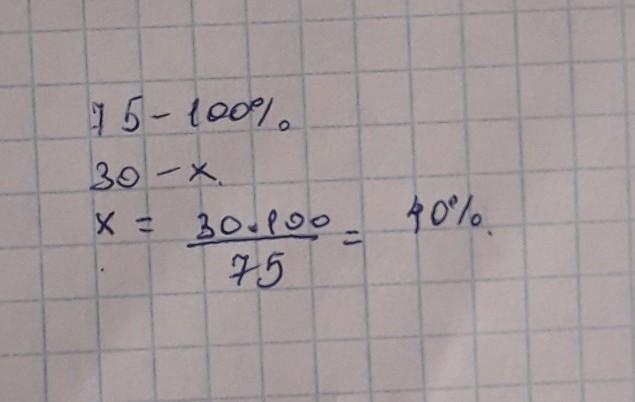 75 - 100%
30 - x.
x = 30·100/75 = 40%.